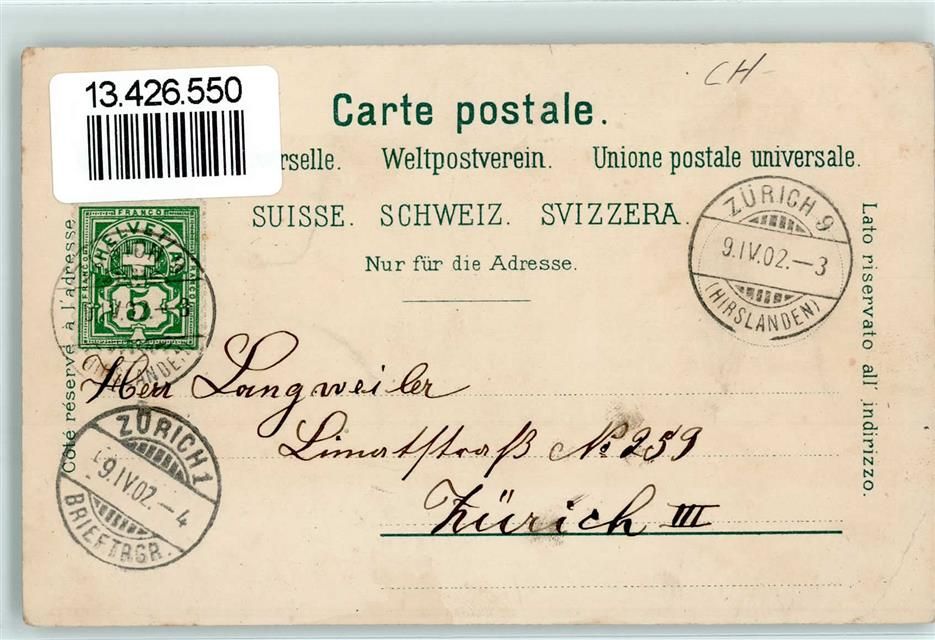 13.426.550
CH-
Carte postale.
rselle. Weltpostverein. Unione postale universale.
SUISSE. SCHWEIZ. SVIZZERA.
Nur für die Adresse.
Côté réservé à l'adresse.
Lato riservato all' indirizzo.
FRANCO
HELVETIA
FRANCO
FRANCO
5
ZÜRICH 9
9.IV.02.–3
(HIRSLANDEN)
Herr Langweiler
Limatstraß No 259
Zürich III
ZÜRICH 1
9.IV.02.–4
BRIEFTRGR.